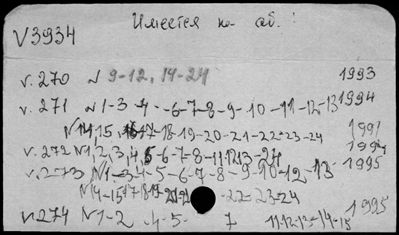 Имеется на об.
V3934
v. 270 N 9-12, 14-24 1993
v. 271 N 1-3-4-6-7-8-9-10-11-12-13 1994
N 14-15, 16-17-18-19-20-21-22-23-24
v. 272 N 1, 2, 3, 4, 5-6-7-8-11 12 13-24 1994
v. 273 N 1-3-4-5-6-7-8-9-10-12-13 1995
N 14-15 17 18 19-20-21 -22-23-24
v. 274 N 1-2 -4-5- 7 11-12-13-14-15 1995